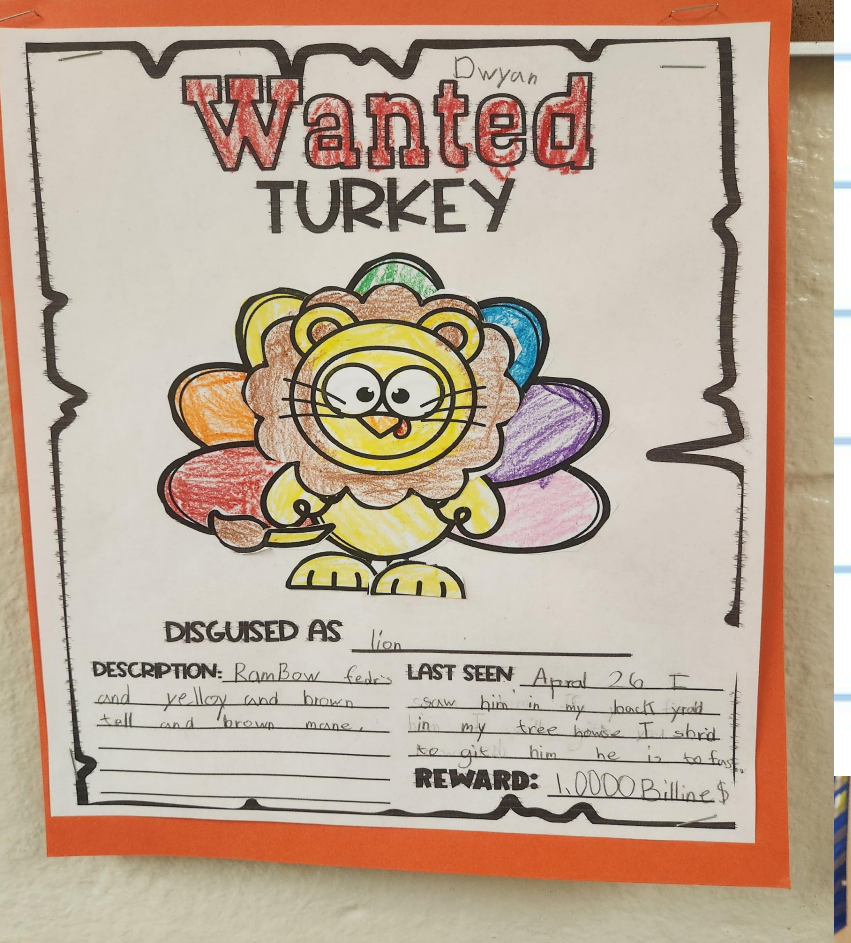 Dwyan
Wanted
TURKEY
DISGUISED AS lion
DESCRIPTION: RamBow fedr's
and yelloy and brown
tell and brown mane.
LAST SEEN Aprol 26 I
saw him in my back yrad
in my tree howse I stard
to git him he is to fast.
REWARD: 1,0000 Billine $